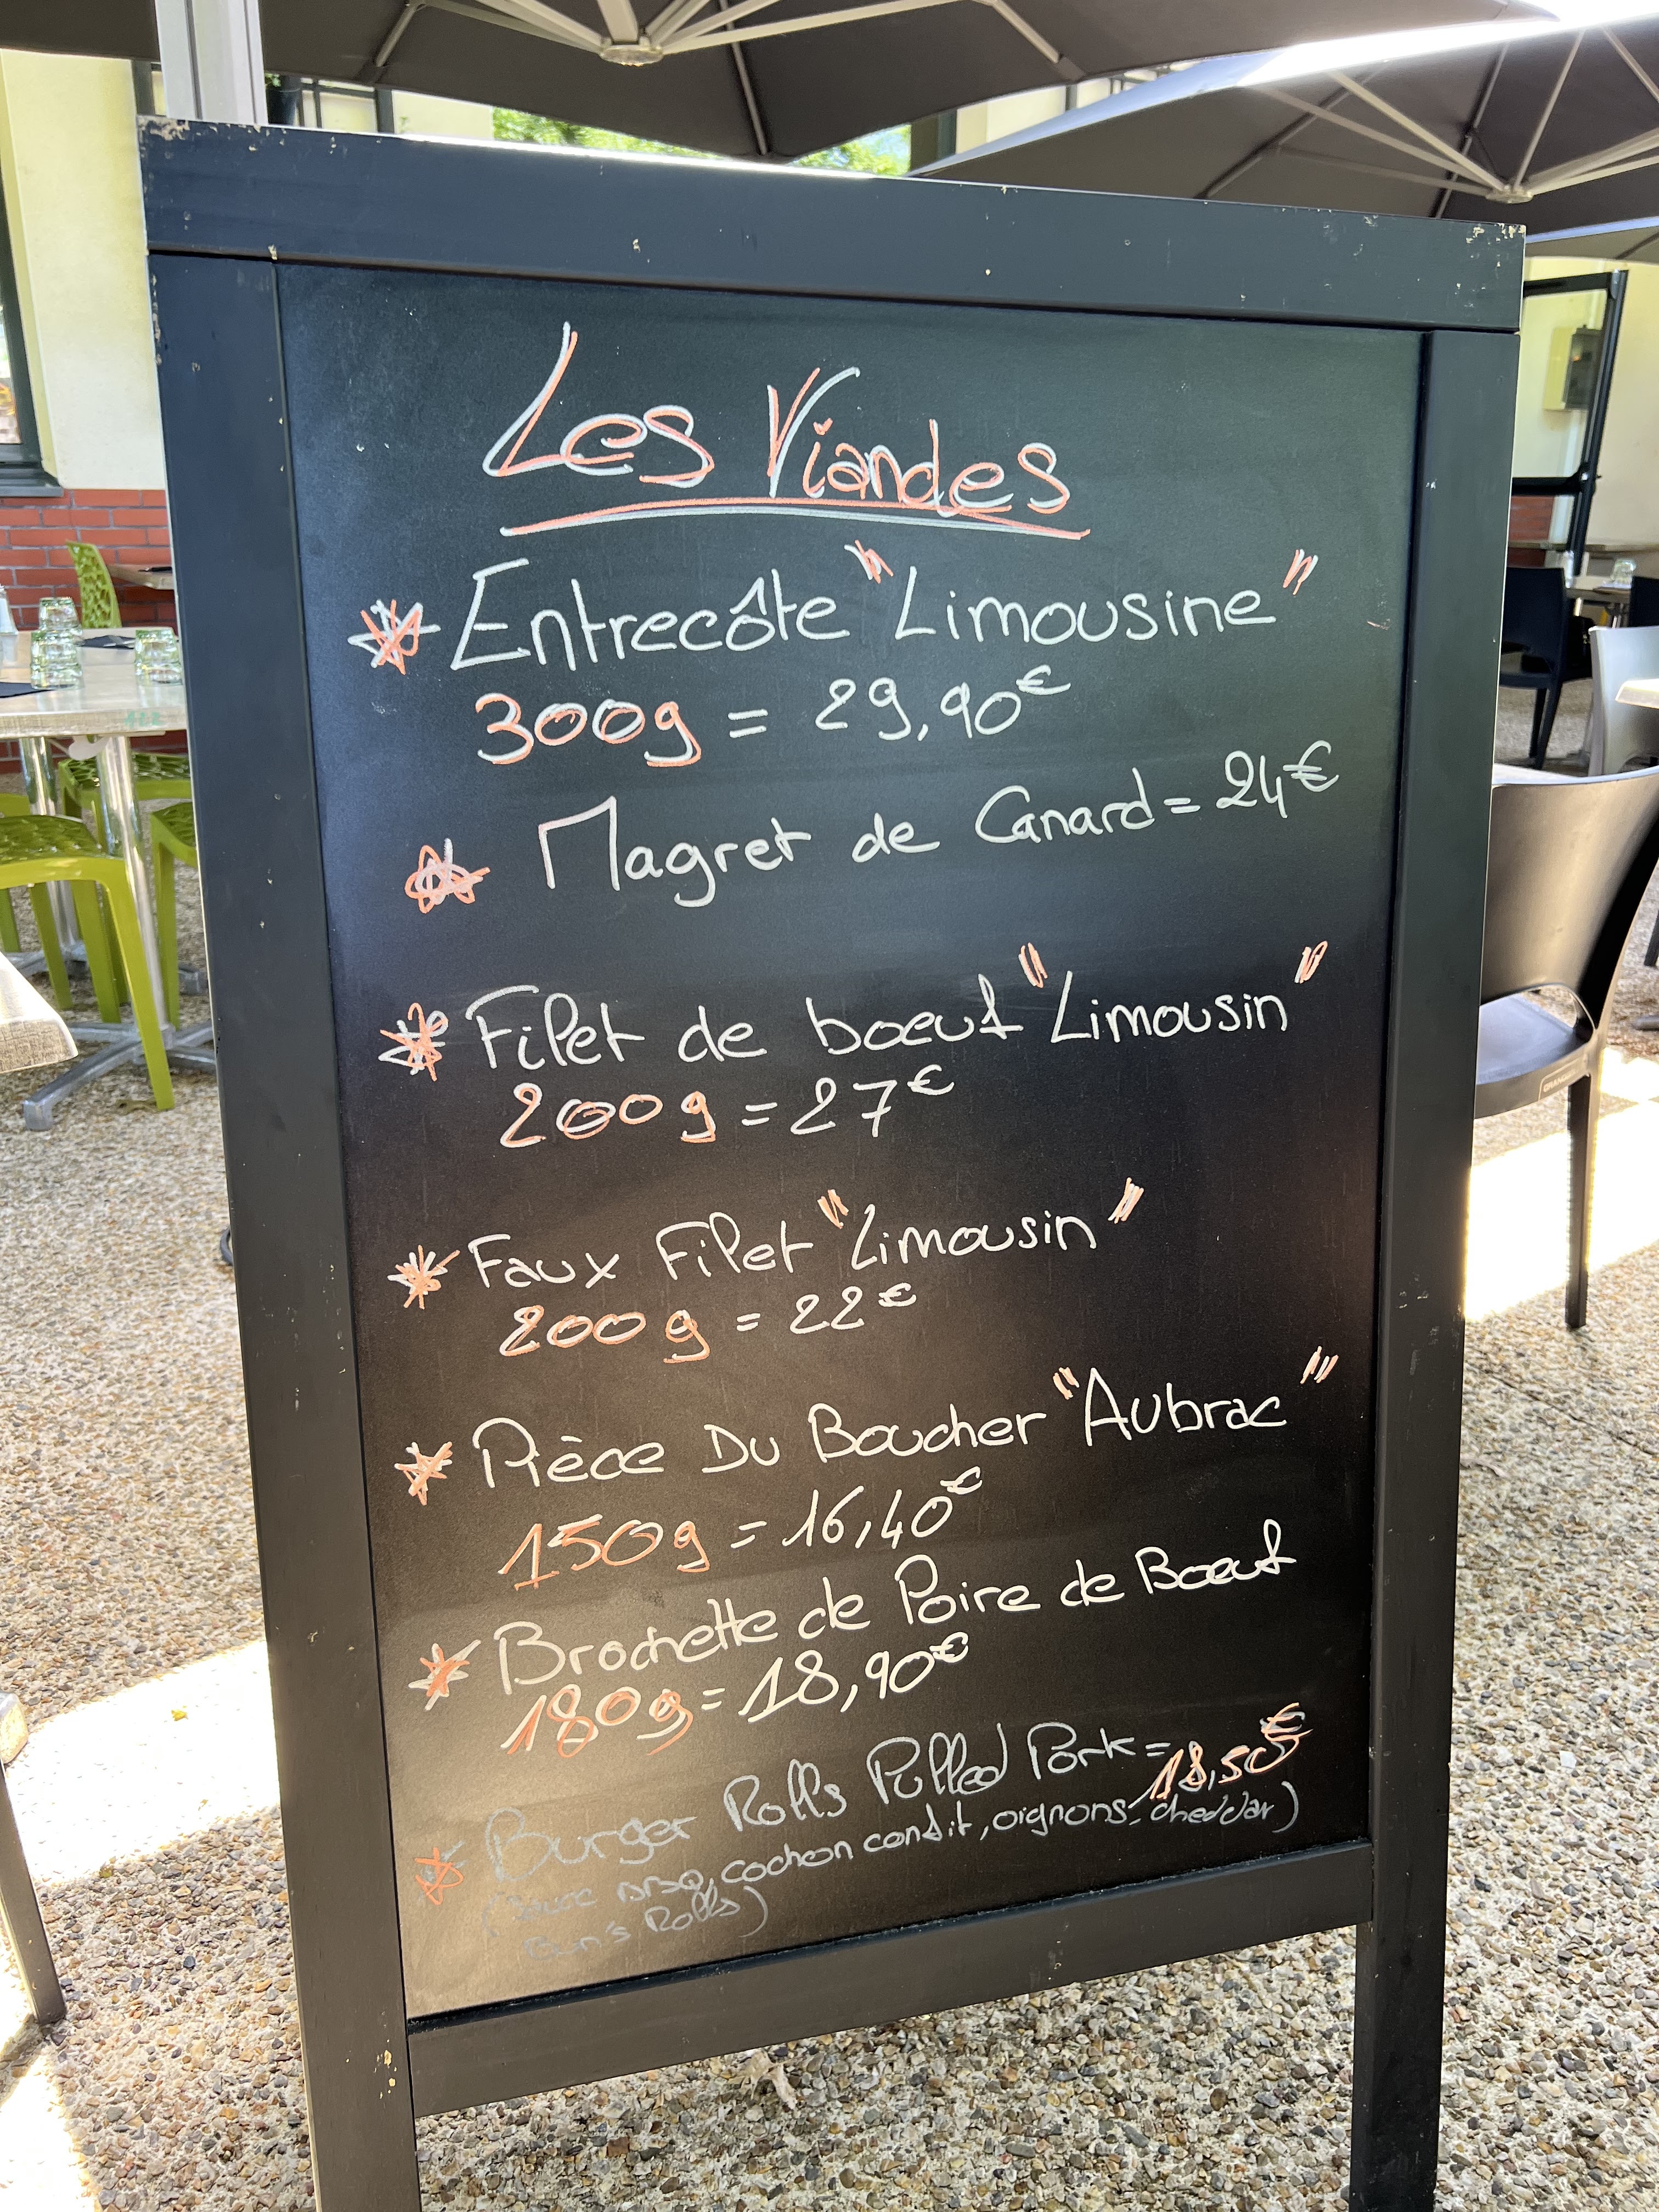 Les Viandes
Entrecôte "Limousine"
300g = 29,90€
Magret de Canard = 24€
Filet de boeuf "Limousin"
200g = 27€
Faux Filet "Limousin"
200g = 22€
Pièce Du Boucher "Aubrac"
150g = 16,40€
Brochette de Poire de Boeuf
180g = 18,90€
Burger Rolls Pulled Pork = 18,50€
(Sauce BBQ, cochon confit, oignons, cheddar)
Bun's Rolls)